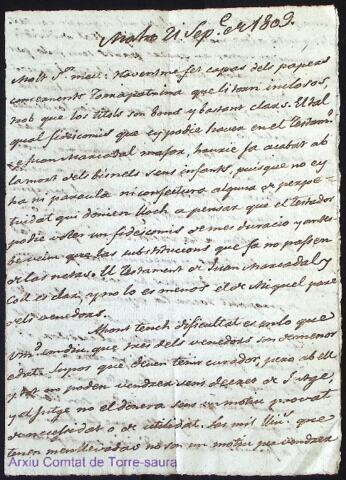 Mahó 21 Sep.e de 1809.
Molt Sor meu: Haventme fet capás dels papers
concernents Torrapatrina que li torn inclosos,
trob que los titols son bons y bastant clars. El tal
qual fideicomis que ey podie haver en el Testamt.
de Juan Marcadal major, hauria fa acabat ab
la mort dels bisnets sens infants, puisque no ey
ha ni paraula ni conjectura alguna de perpe-
tuidat que donien lloch a pensar que el testador
podie voler un fideicomis de mes duració y antes
be veim que las substitucions que fa no passen
de las netas. El testament de Juan Marcadal y
Coll es clar, y no lo es menos el de Miquel pare
dels venedors.
Ahont tench dificultat es en lo que
Vmd. son diu, que tres dels venedors son de menor
edat. Supos que deuen tenir curador, pero ab ell
y tot no poden vendrer sens decret de Jutge,
y el Jutge no el donará sens un motiu provat
de necessidat o de utilidat. Las mil lliu.s que
tenen manllevadas no son un motiu per vendrer
Arxiu Comtat de Torre-saura